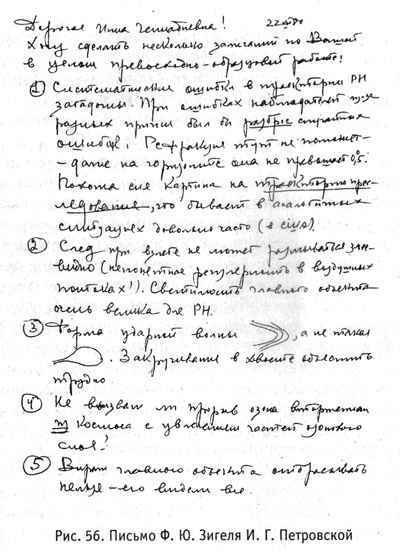 Дорогая Инна Геннадиевна!
Хочу сделать несколько замечаний по Вашей
в целом превосходно-образцовой работе!
① Систематические ошибки в траектории РН
загадочны. При ошибках наблюдателей
разных причин был бы разброс
ошибок! Рефракция тут не поможет
- даже на горизонте она не превышает 0,5.
Похожа сия картина на траекторию прес-
ледования, что бывает в аналогичных
ситуациях довольно часто
② След при взлете не может размываться
(непонятное в воздушных
потоках!). Светимость главного объекта
очень велика для РН.
③ Форма ударной волны , а не такая
. Закручивание в хвосте объяснить
трудно
④ Не вызван ли прорыв озона вторжением
из космоса с увлечением частей озонового
слоя?
⑤ Вираж главного объекта отбрасывать
нельзя - его видели все.
Рис. 56. Письмо Ф. Ю. Зигеля И. Г. Петровской